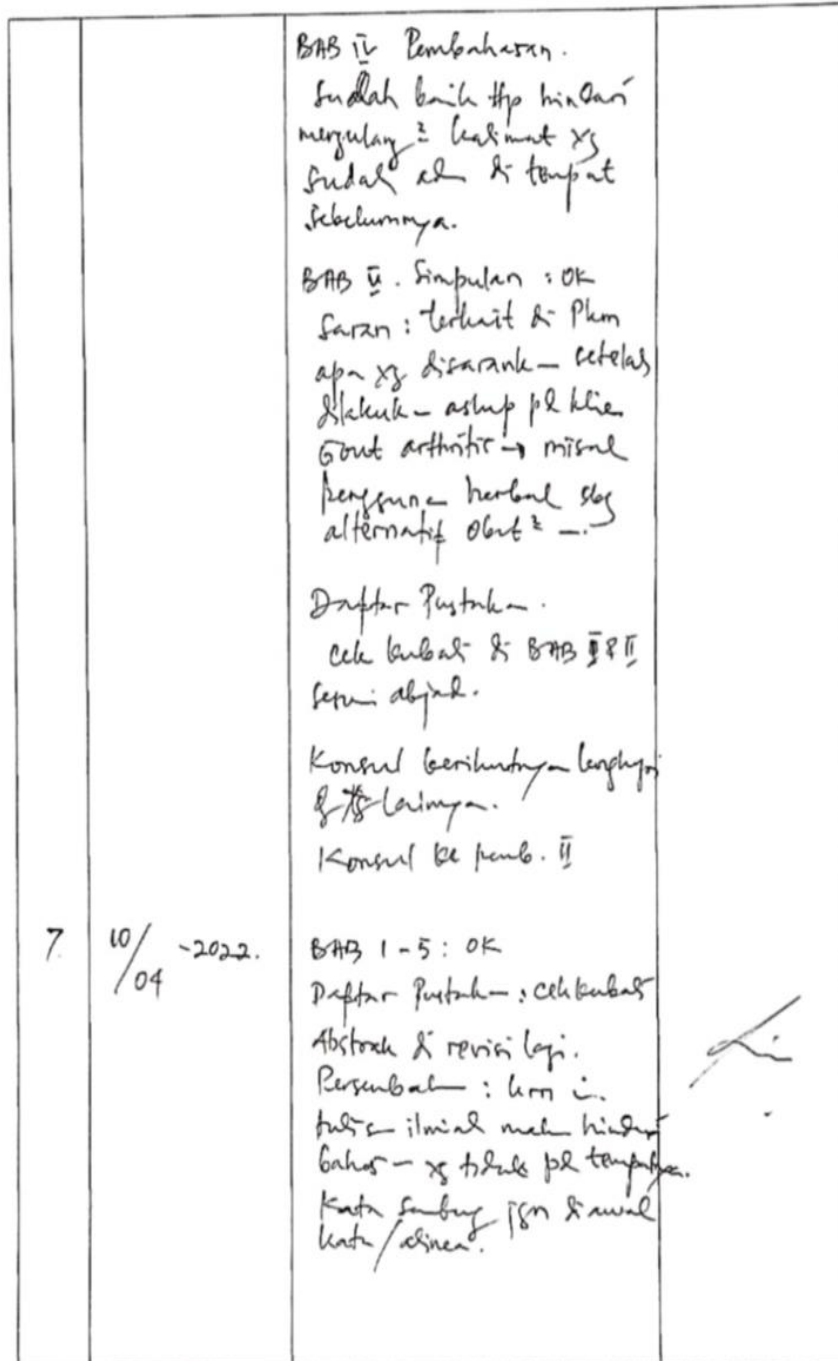 BAB IV Pembahasan.
Sudah baik ttp hindari
mengulang² kalimat yg
sudah ada di tempat
sebelumnya.
BAB V. Simpulan : OK
Saran : terkait di Pkm
apa yg disarank— setelah
dilakuk— askep pd klien
Gout arthritis → misal
penggunaan herbal sbg
alternatif obat² —.
Daftar Pustaka.
cek kembali di BAB I & II
sesuai abjad.
Konsul berikutnya lengkapi
lainnya.
Konsul ke pemb. II
7. 10/04 -2022. BAB 1-5 : OK
Daftar Pustaka : cek kembali
Abstrak di revisi lagi.
Persembah— : krn ini
tulisan ilmiah maka hindari
bahas— yg tidak pd tempatnya.
Kata sambung jgn diawal
kata/alinea.